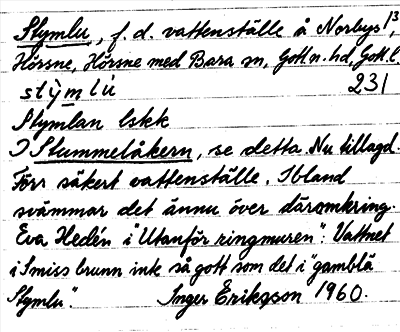 Stymlu, f. d. vattenställe å Norbys 1³,
Hörsne, Hörsne med Bara sn, Gotl. n. hd, Gotl. l.
stỳmlù 231
Stymlan lskk
Ɔ Stummelåkern, se detta. Nu tillagd.
Förr säkert vattenställe. Ibland
svämmar det ännu över däromkring.
Eva Hedén i "Utanför ringmuren": Vattnet
i Smiss brunn inte så gott som det i "gamblä
Stymlu". Inger Eriksson 1960.